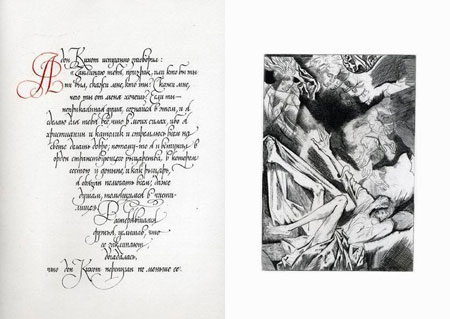 А дон Кихот испуганно заговорил:
– Заклинаю тебя, призрак, или кто бы ты
ни был, скажи мне, кто ты? Скажи мне,
чего ты от меня хочешь? Если ты –
неприкаянная душа, сознайся в этом, и я
сделаю для тебя всё, что в моих силах, ибо я
христианин и католик и стремлюсь всем на
свете делать добро; потому-то я и вступил в
орден странствующего рыцарства, в котором
состою и доныне, и как рыцарь,
я обязан помогать всем, даже
душам, томящимся в чисти-
лище.
Растерявшаяся
дуэнья, услышав, что
ее заклинают,
догадалась,
что дон Кихот перепуган не меньше ее.